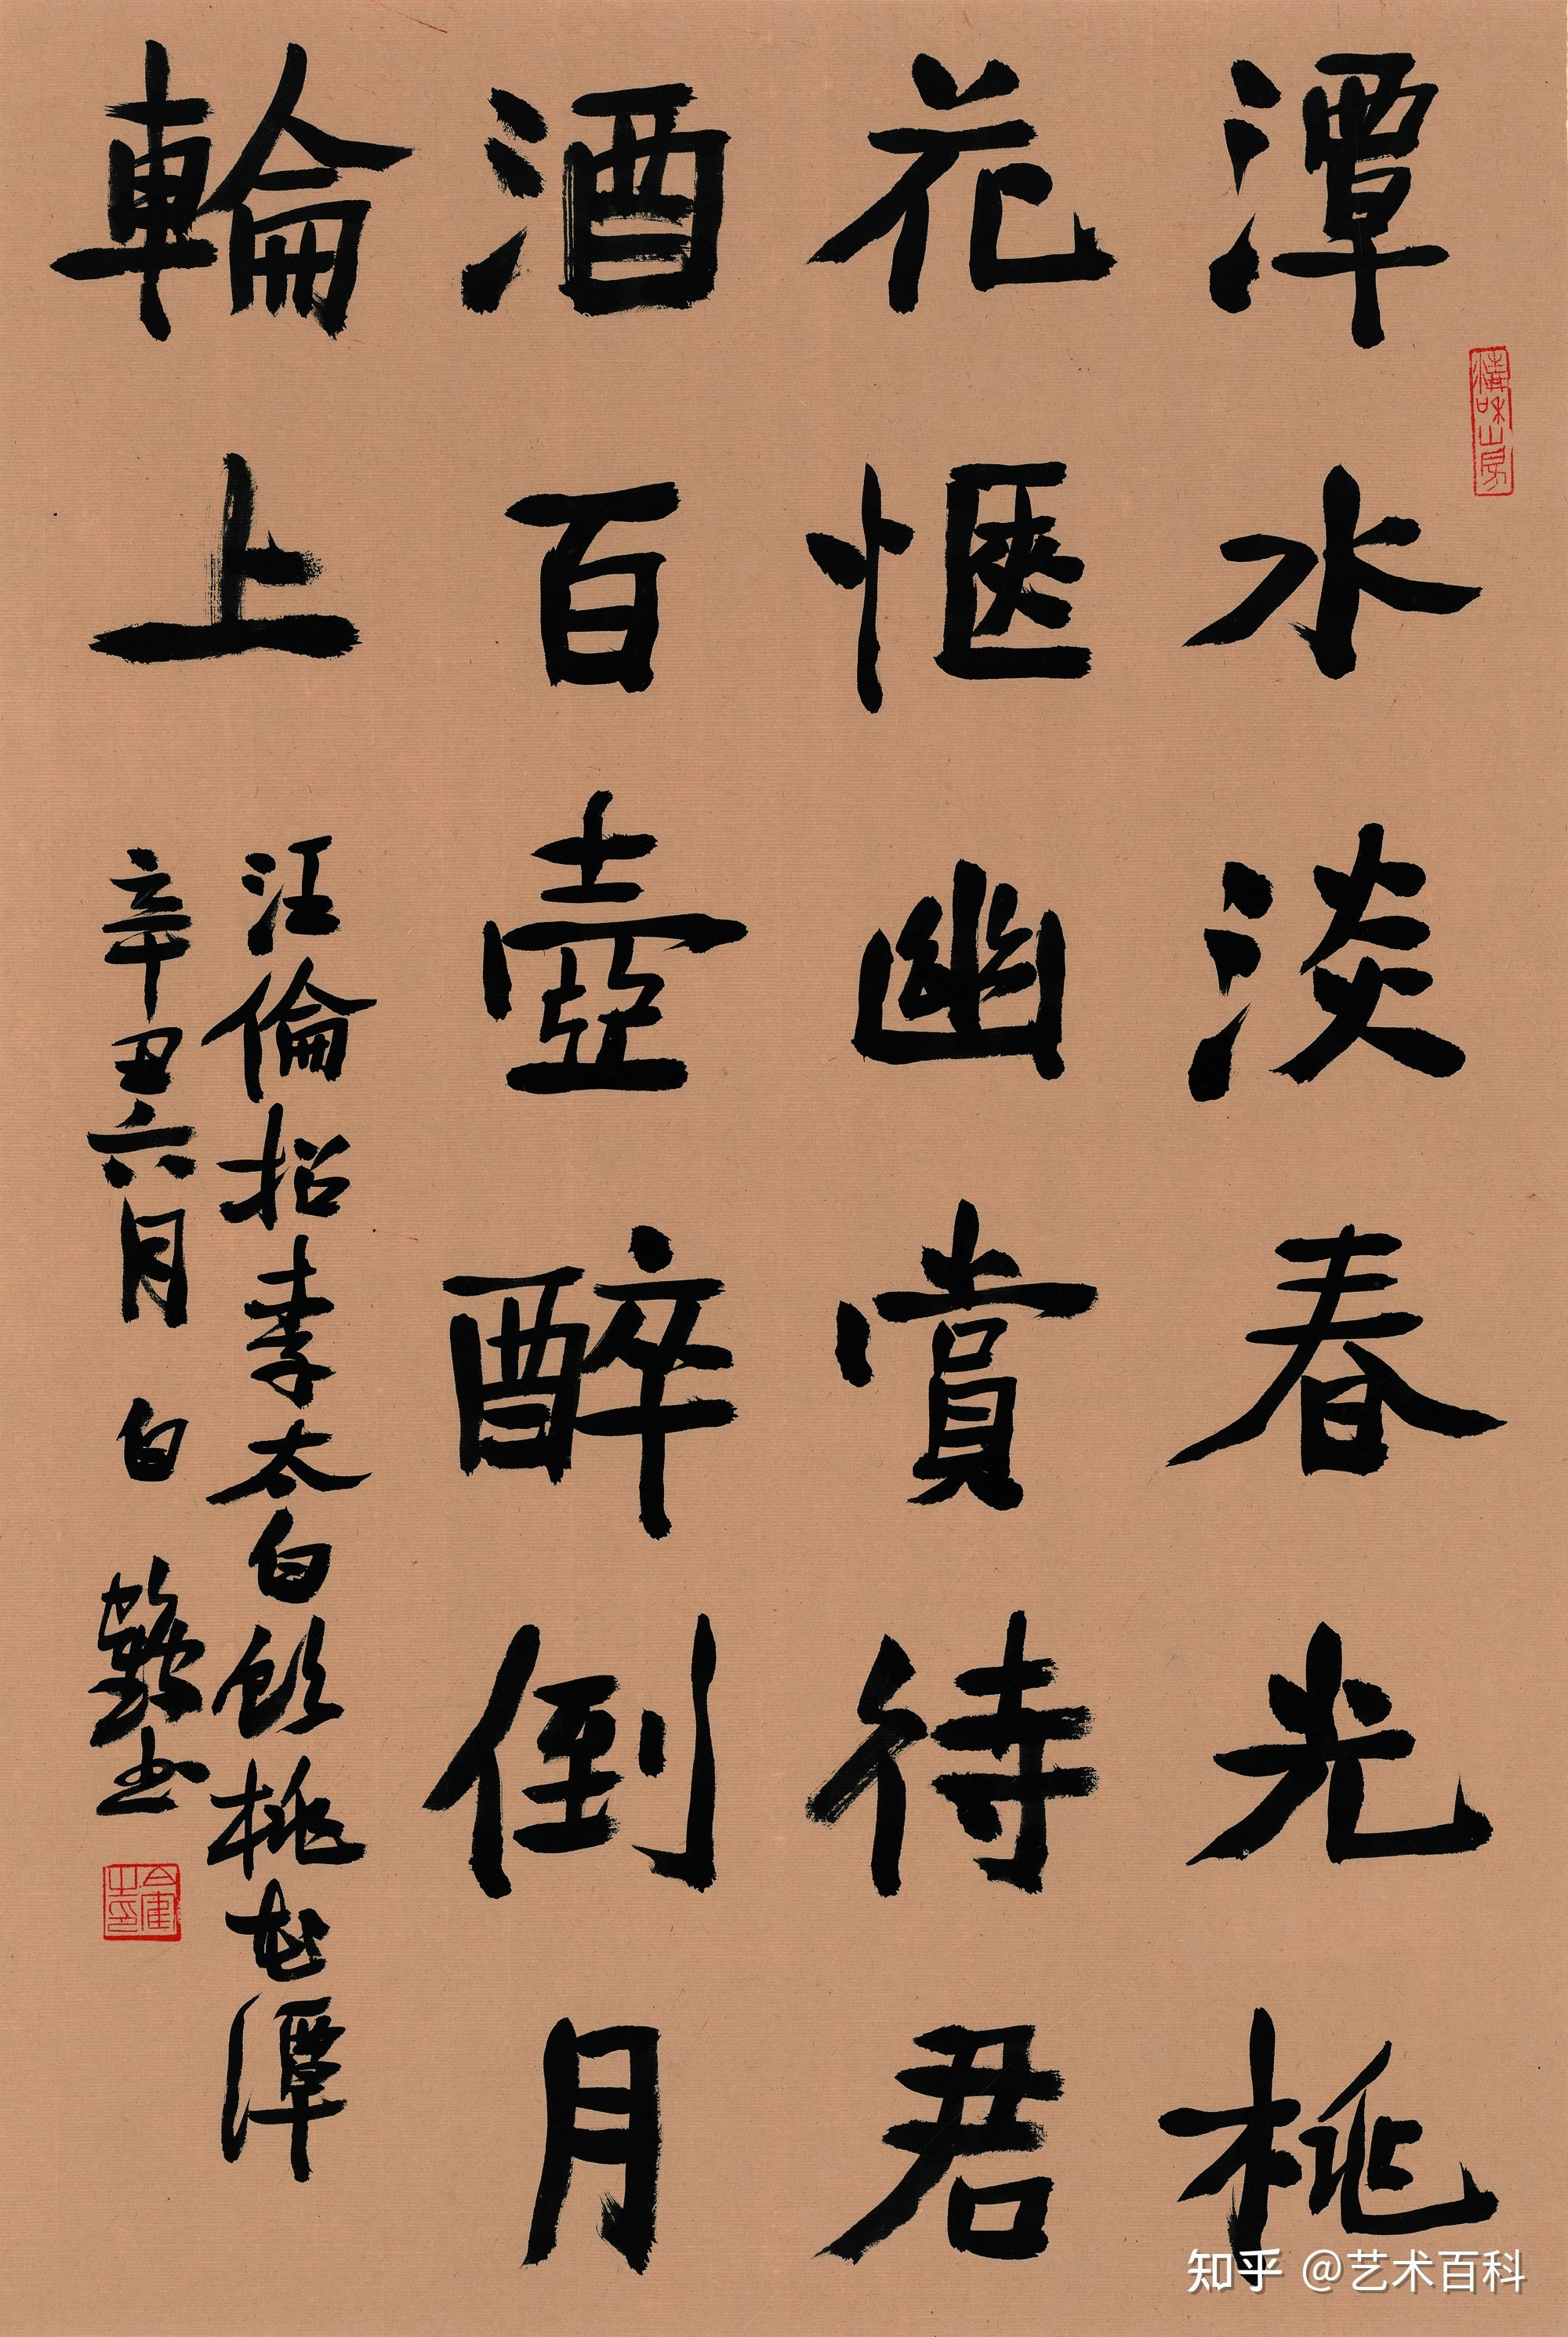 潭水淡春光桃
花惬幽赏待君
酒百壺醉倒月
輪上
汪倫招李太白飲桃花潭
辛丑六月 白
书
知乎 @艺术百科